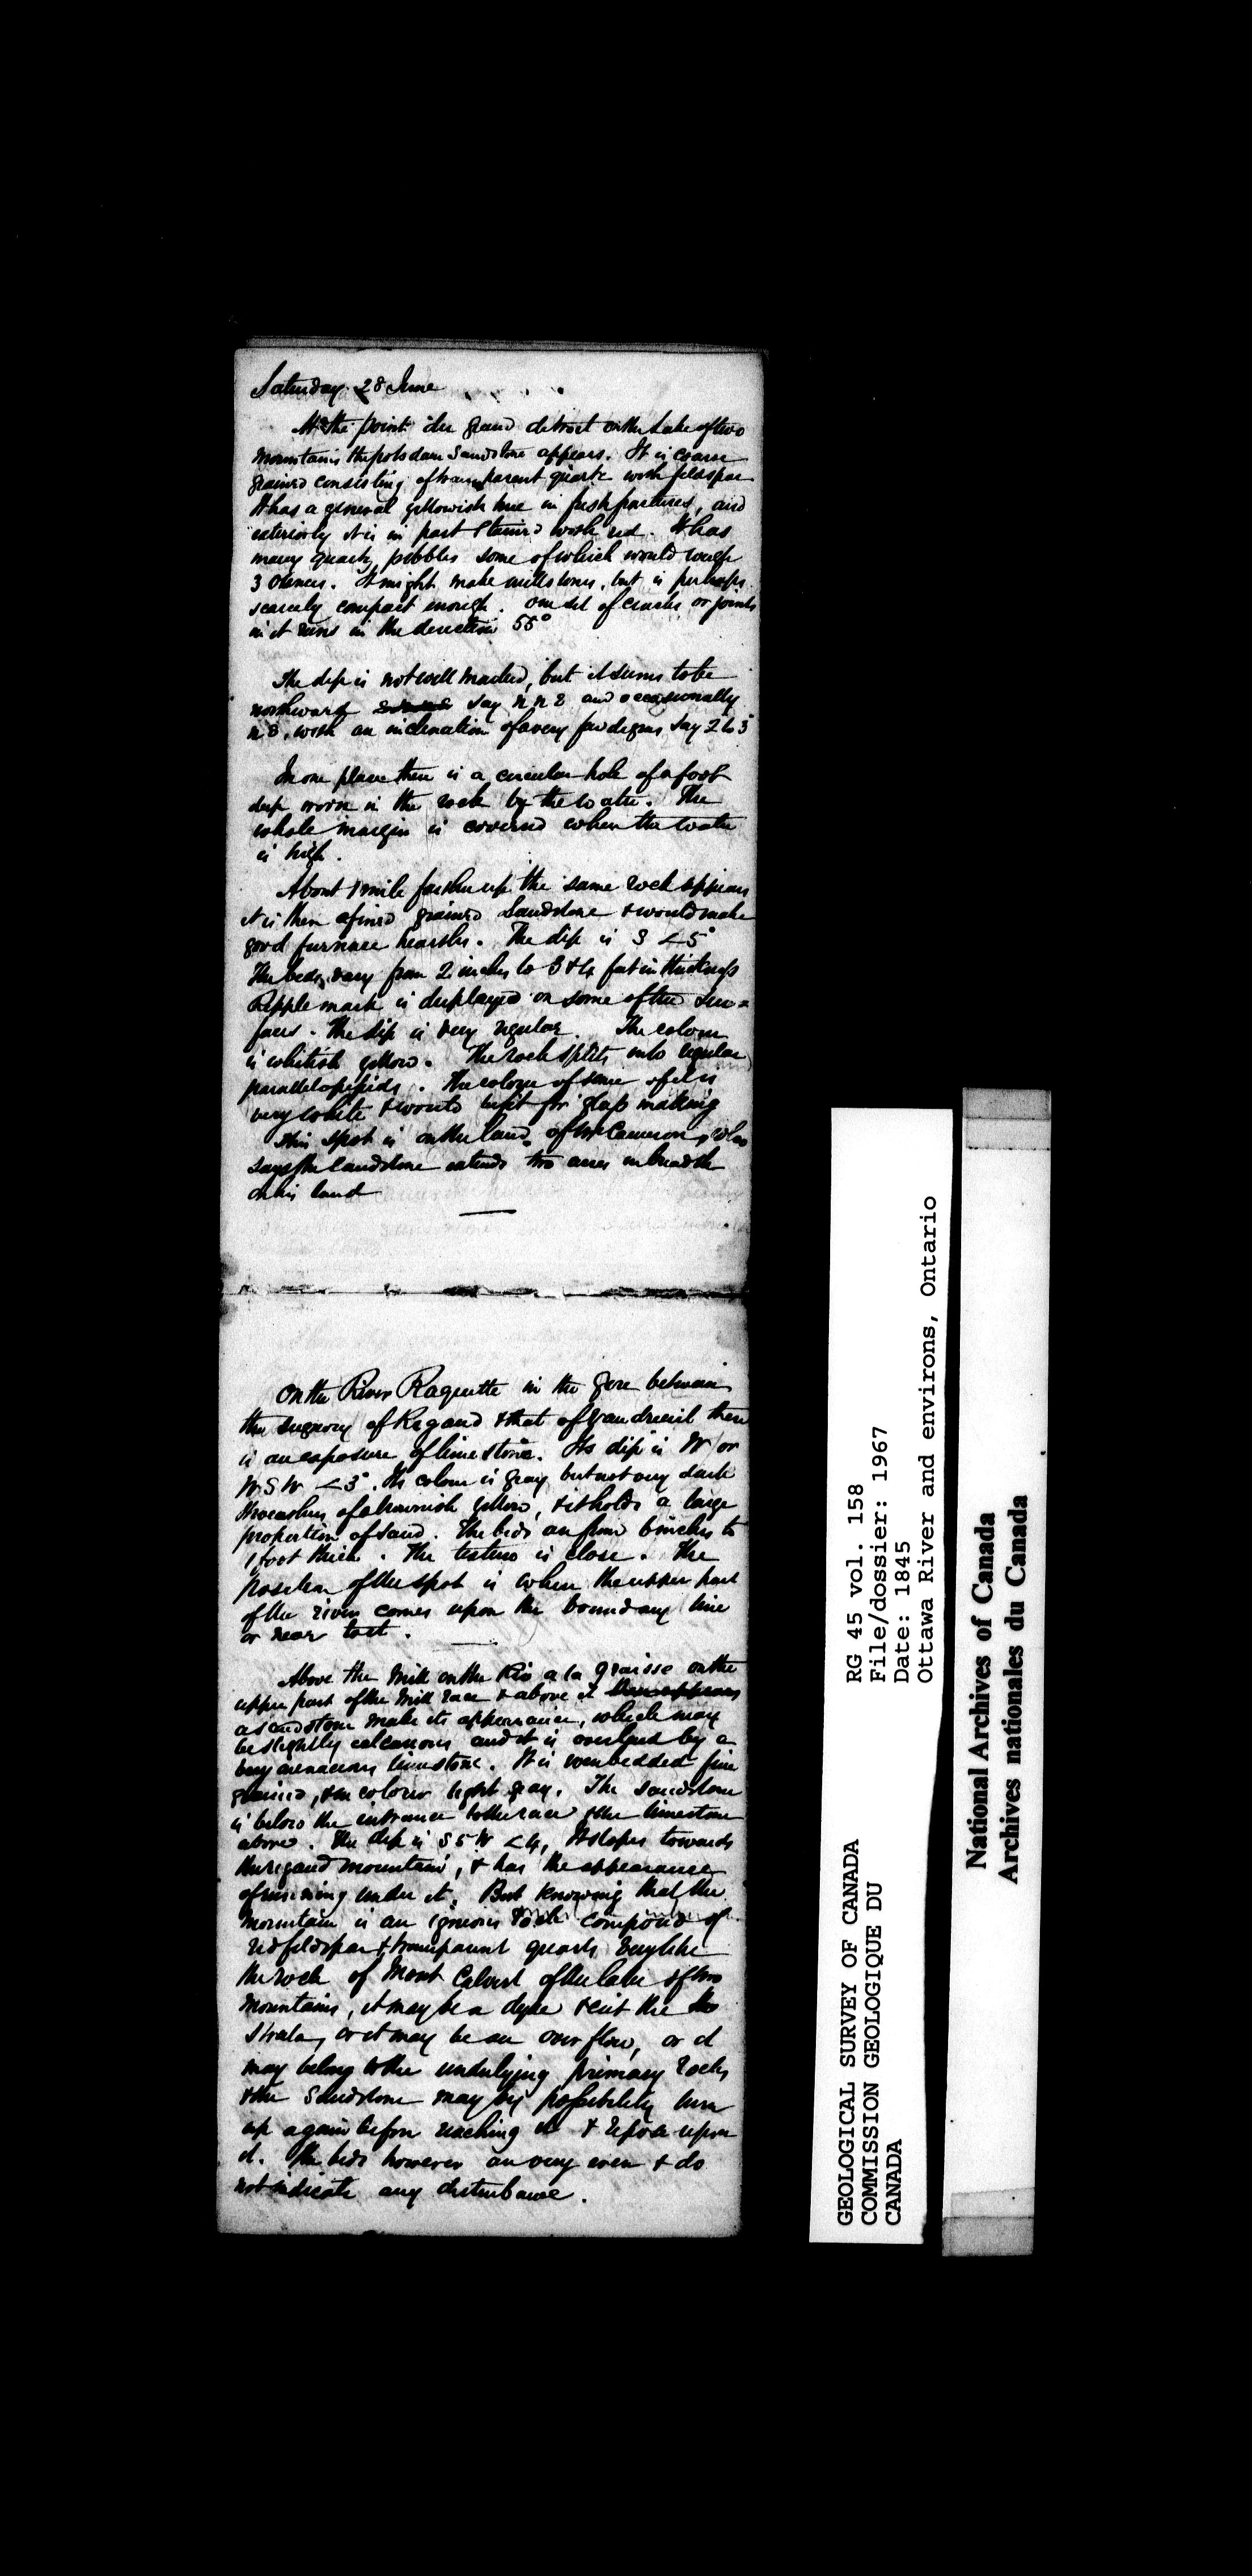 Saturday 28 June
At the point du grand detroit on the Lake of two
Mountains the potsdam Sandstone appears. It is coarse
grained consisting of transparent quartz with feldspar
It has a general yellowish hue in fresh fractures, and
exteriorly it is in part stained with red. It has
many quartz pebbles some of which would weigh
3 ounces. It might make millstones, but is perhaps
scarcely compact enough. One set of cracks or joints
in it runs in the direction 55°
The dip is not well marked, but it seems to be
northward say N N E and occasionally
N E, with an inclination of a very few degrees say 2 to 3°
In one place there is a circular hole of a foot
deep worn in the rock by the water. The
whole margin is covered when the water
is high.
About 1 mile farther up the same rock appears
it is then a fine grained Sandstone & would make
good furnace hearths. The dip is S < 5°
The beds vary from 2 inches to 3 & 4 feet in thickness
Ripple mark is displayed on some of the sur=
faces. The dip is very regular. The colour
is whitish yellow. The rock splits into regular
parallelopipids. The colour of some of it is
very white & would be fit for glass making
This spot is on the land of Mr Cameron, who
says the sandstone extends two acres in breadth
on his land
On the River Raquette in the gore between
the seignory of Rigaud & that of Vaudreuil there
is an exposure of limestone. Its dip is W or
W S W < 3°. Its colour is gray but not very dark
it weathers of a brownish yellow, & it holds a large
proportion of sand. The beds are from 6 inches to
1 foot thick. The texture is close. The
position of the spot is where the upper part
of the river comes upon the boundary line
or near to it.
Above the Mill on the Riv a la Graisse on the
upper part of the Mill race & above it
a sandstone make its appearance, which may
be slightly calcareous and it is overlaid by a
very arenaceous limestone. It is even bedded fine
grained, & in colour light gray. The sandstone
is below the entrance to the race & the limestone
above. The dip is S 5 W < 4, It slopes towards
the rigaud mountain, & has the appearance
of running under it. But knowing that the
mountain is an igneous rock composed of
red feldspar & transparent quartz very like
the rock of Mont Calvert of the lake of two
Mountains, it may be a dyke & cut the
strata, or it may be an over flow, or it
may belong to the underlying primary rocks
& the Sandstone may by possibility turn
up again before reaching it & repose upon
it. The beds however are very even & do
not indicate any disturbance.
GEOLOGICAL SURVEY OF CANADA
COMMISSION GEOLOGIQUE DU
CANADA
RG 45 vol. 158
File/dossier: 1967
Date: 1845
Ottawa River and environs, Ontario
National Archives of Canada
Archives nationales du Canada